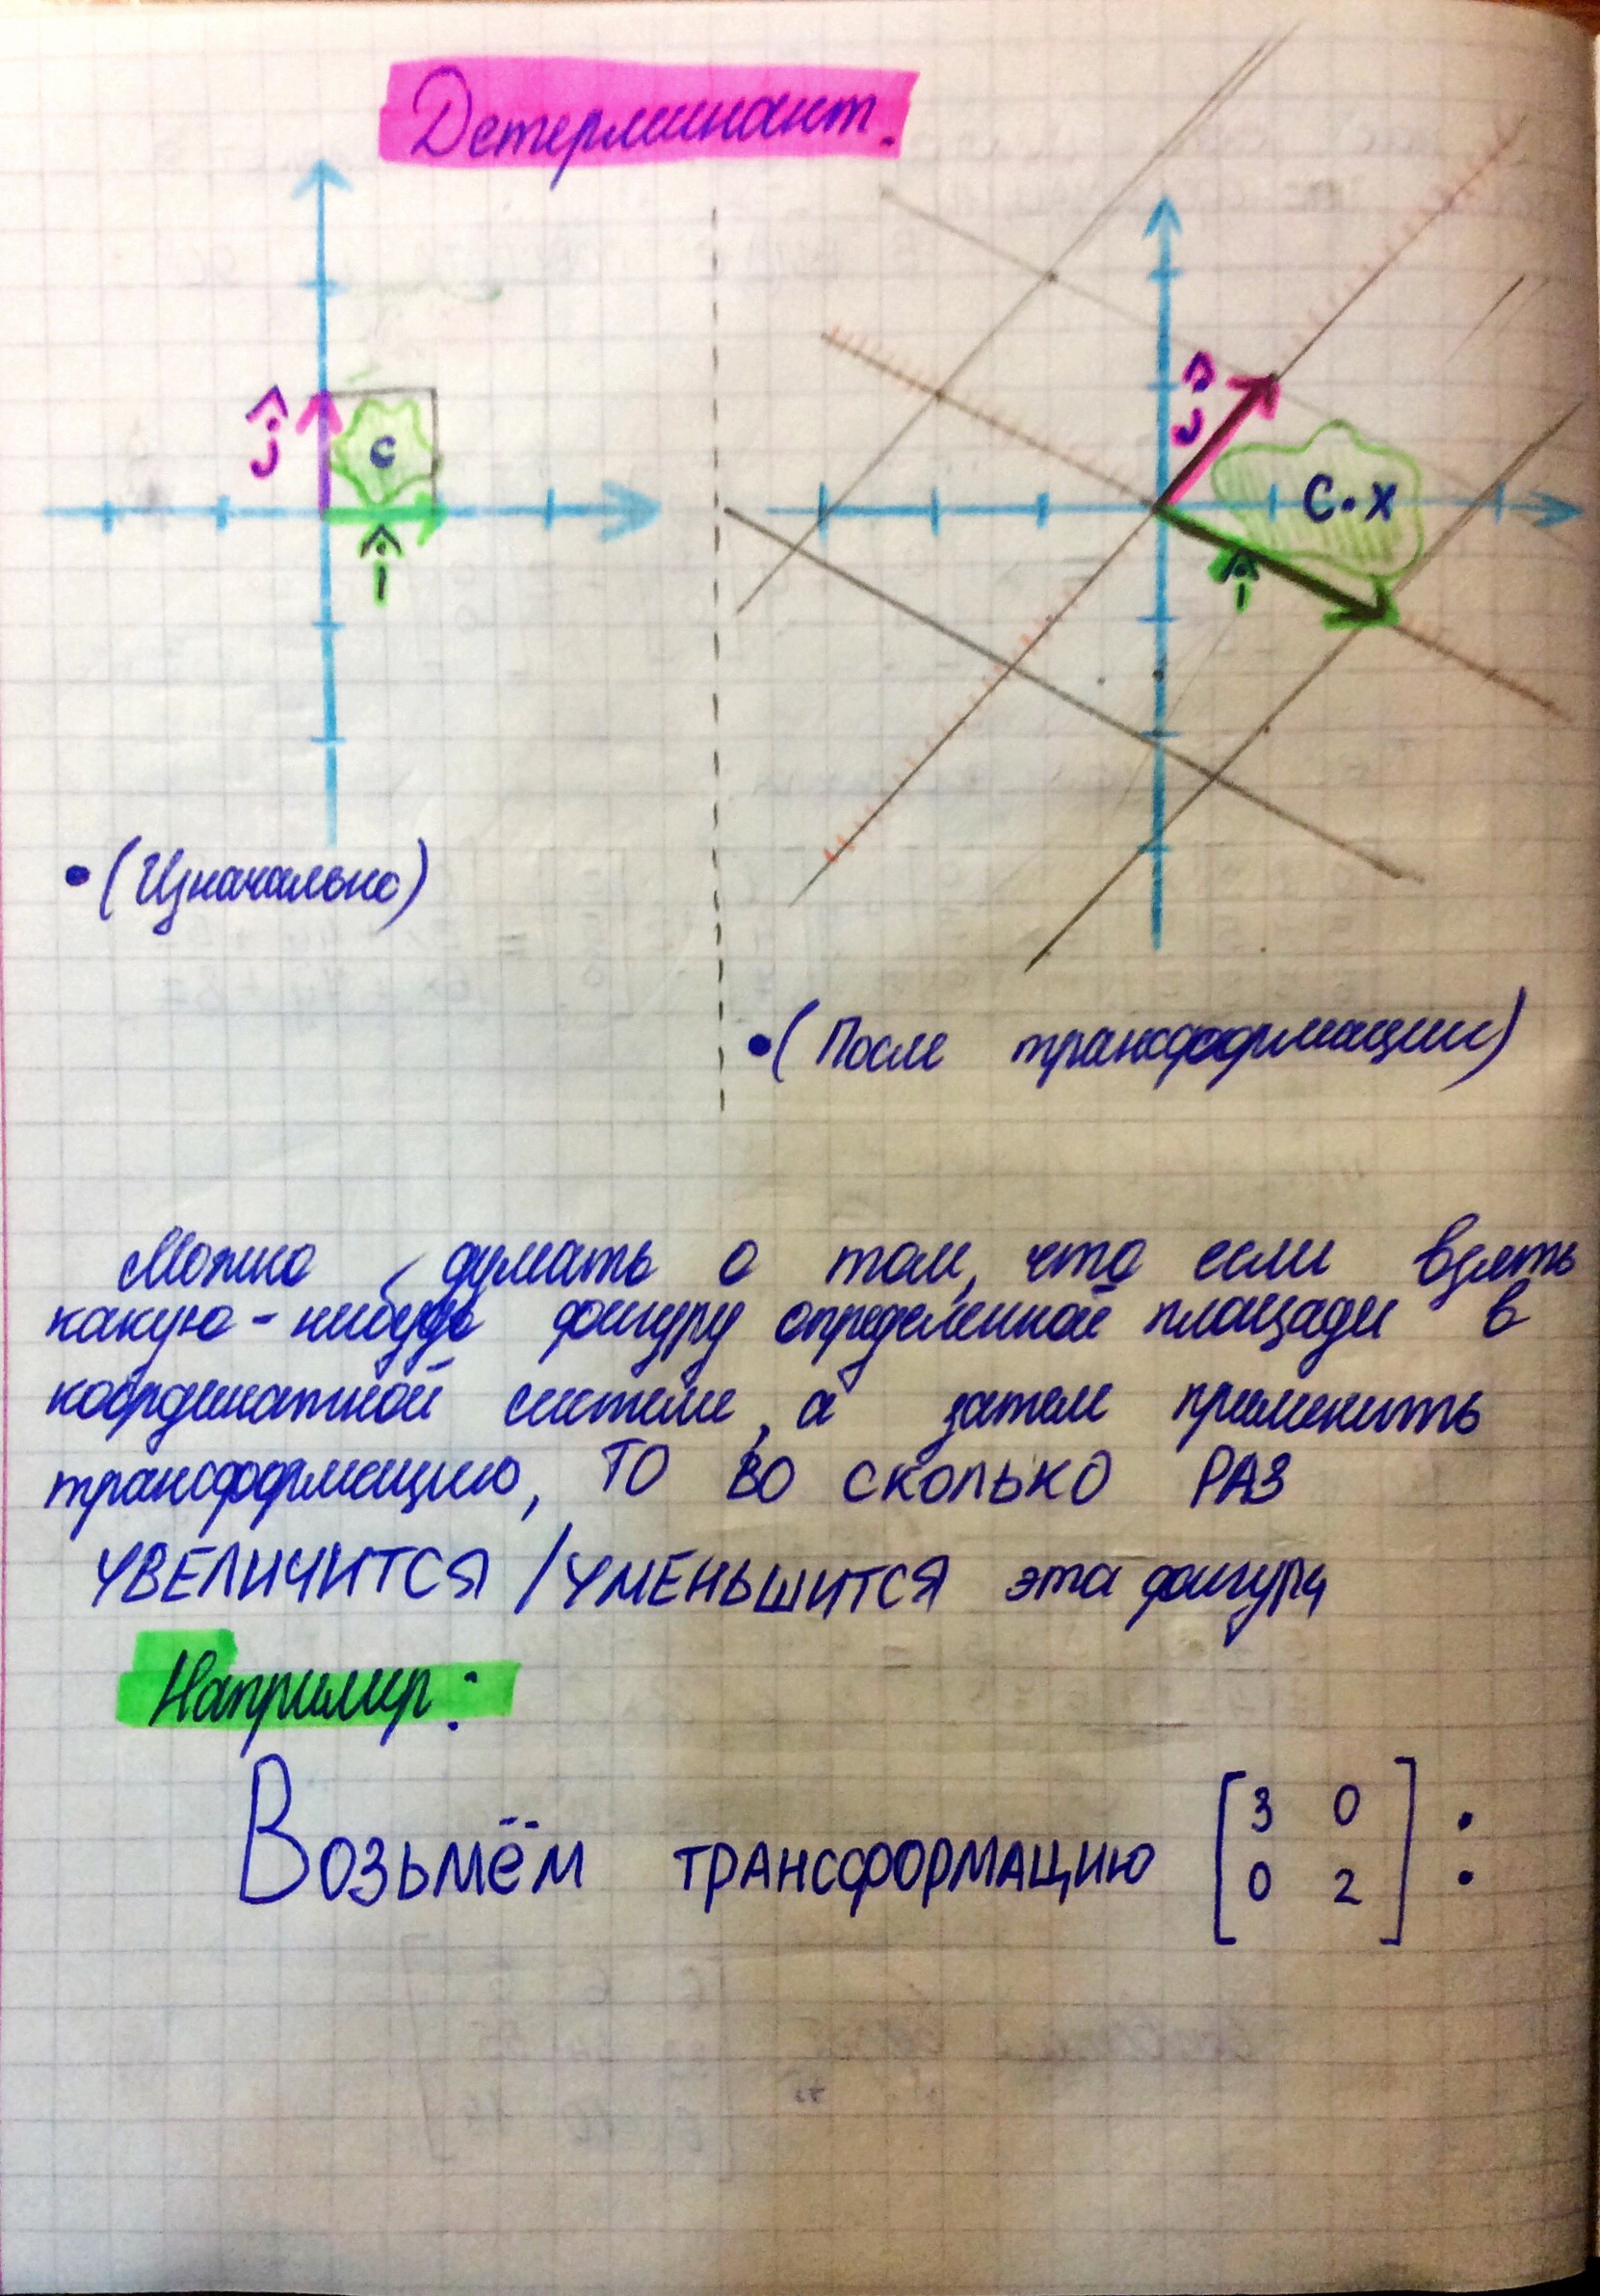 Детерминант.
ĵ
с
î
ĵ
С·х
î
• (Изначально)
• (После трансформации)
Можно думать о том, что если взять
какую-нибудь фигуру определенной площади в
координатной системе, а затем применить
трансформацию, ТО ВО СКОЛЬКО РАЗ
УВЕЛИЧИТСЯ / УМЕНЬШИТСЯ эта фигура
Например:
Возьмём трансформацию [3 0
0 2] :